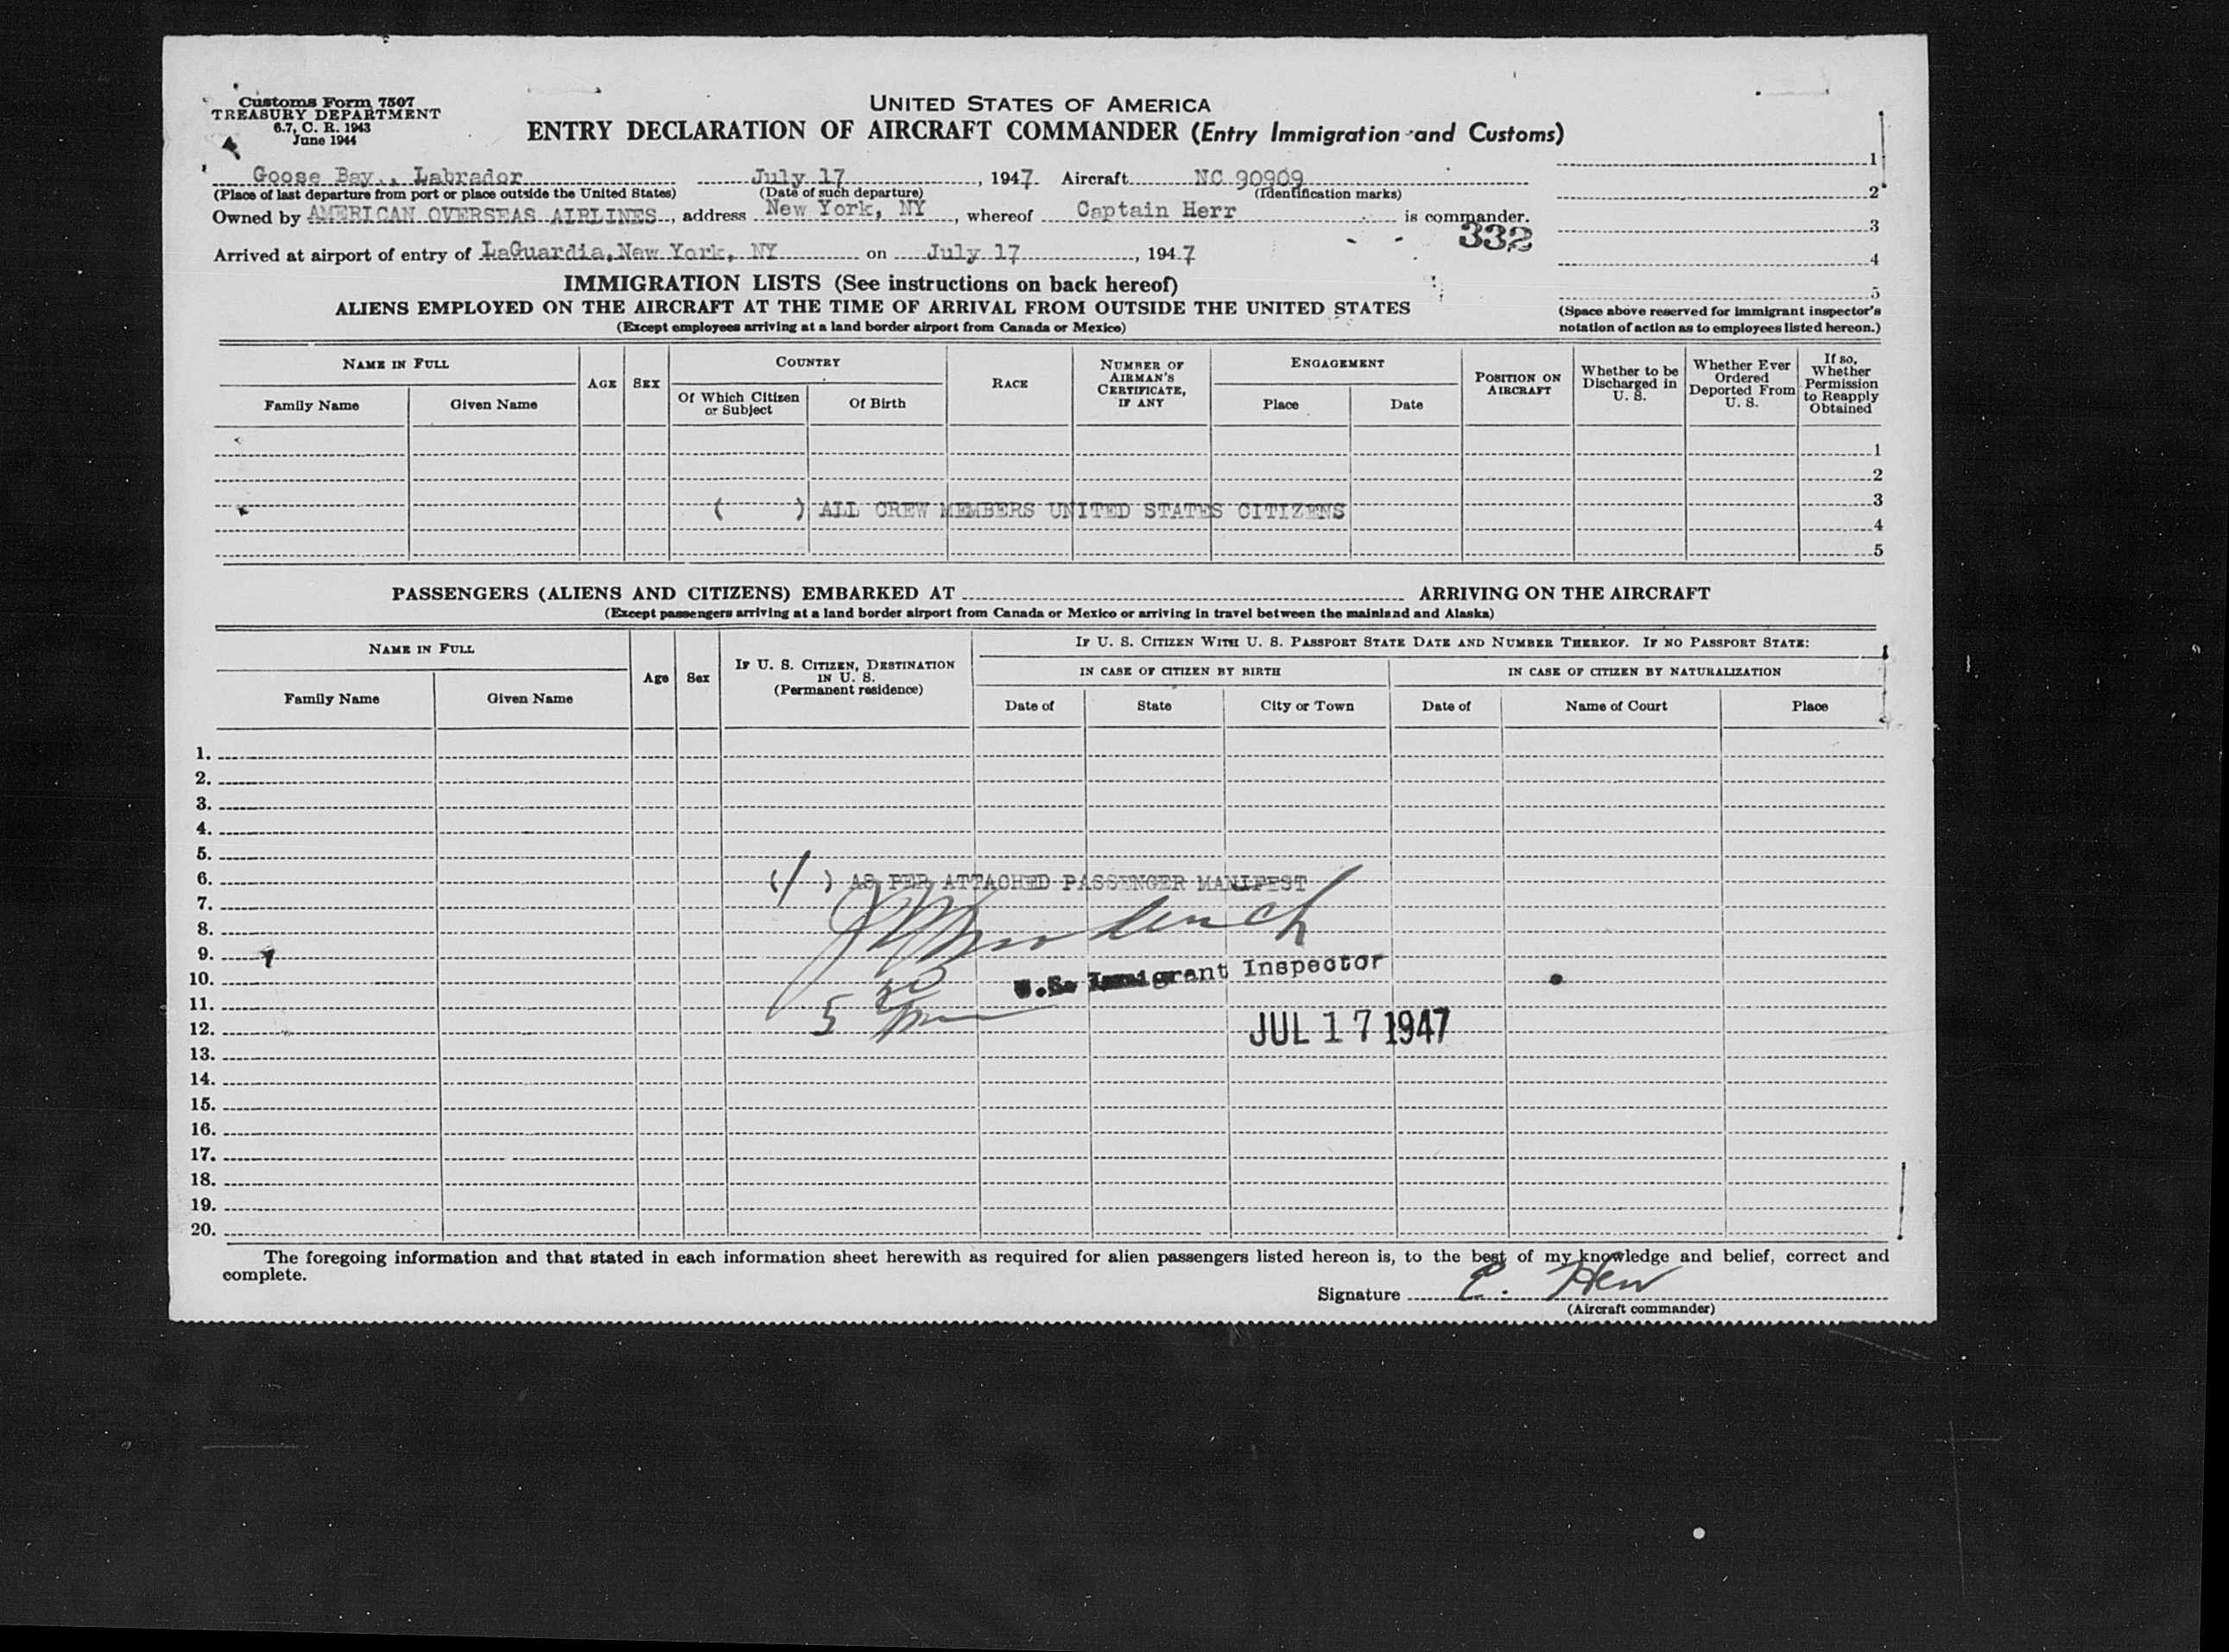 Customs Form 7507
TREASURY DEPARTMENT
6.7, C. R. 1943
June 1944
UNITED STATES OF AMERICA
ENTRY DECLARATION OF AIRCRAFT COMMANDER (Entry Immigration and Customs)
Goose Bay., Labrador July 17, 1947 Aircraft NC 90909
(Place of last departure from port or place outside the United States) (Date of such departure) (Identification marks)
Owned by AMERICAN OVERSEAS AIRLINES, address New York, NY, whereof Captain Herr is commander.
332
Arrived at airport of entry of LaGuardia, New York, NY on July 17, 1947
1
2
3
4
5
(Space above reserved for immigrant inspector's
notation of action as to employees listed hereon.)
IMMIGRATION LISTS (See instructions on back hereof)
ALIENS EMPLOYED ON THE AIRCRAFT AT THE TIME OF ARRIVAL FROM OUTSIDE THE UNITED STATES
(Except employees arriving at a land border airport from Canada or Mexico)
NAME IN FULL
Family Name
Given Name
AGE
SEX
COUNTRY
Of Which Citizen
or Subject
Of Birth
RACE
NUMBER OF
AIRMAN'S
CERTIFICATE,
IF ANY
ENGAGEMENT
Place
Date
POSITION ON
AIRCRAFT
Whether to be
Discharged in
U. S.
Whether Ever
Ordered
Deported From
U. S.
If so,
Whether
Permission
to Reapply
Obtained
1
2
3
( ) ALL CREW MEMBERS UNITED STATES CITIZENS
4
5
PASSENGERS (ALIENS AND CITIZENS) EMBARKED AT ARRIVING ON THE AIRCRAFT
(Except passengers arriving at a land border airport from Canada or Mexico or arriving in travel between the mainland and Alaska)
NAME IN FULL
Family Name
Given Name
Age
Sex
IF U. S. CITIZEN, DESTINATION
IN U. S.
(Permanent residence)
IF U. S. CITIZEN WITH U. S. PASSPORT STATE DATE AND NUMBER THEREOF. IF NO PASSPORT STATE:
IN CASE OF CITIZEN BY BIRTH
IN CASE OF CITIZEN BY NATURALIZATION
Date of
State
City or Town
Date of
Name of Court
Place
1.
2.
3.
4.
5.
6. (/) AS PER ATTACHED PASSENGER MANIFEST
7.
8.
9.
10. U.S. Immigrant Inspector
11.
12. JUL 17 1947
13.
14.
15.
16.
17.
18.
19.
20.
The foregoing information and that stated in each information sheet herewith as required for alien passengers listed hereon is, to the best of my knowledge and belief, correct and
complete.
Signature E. Herr
(Aircraft commander)